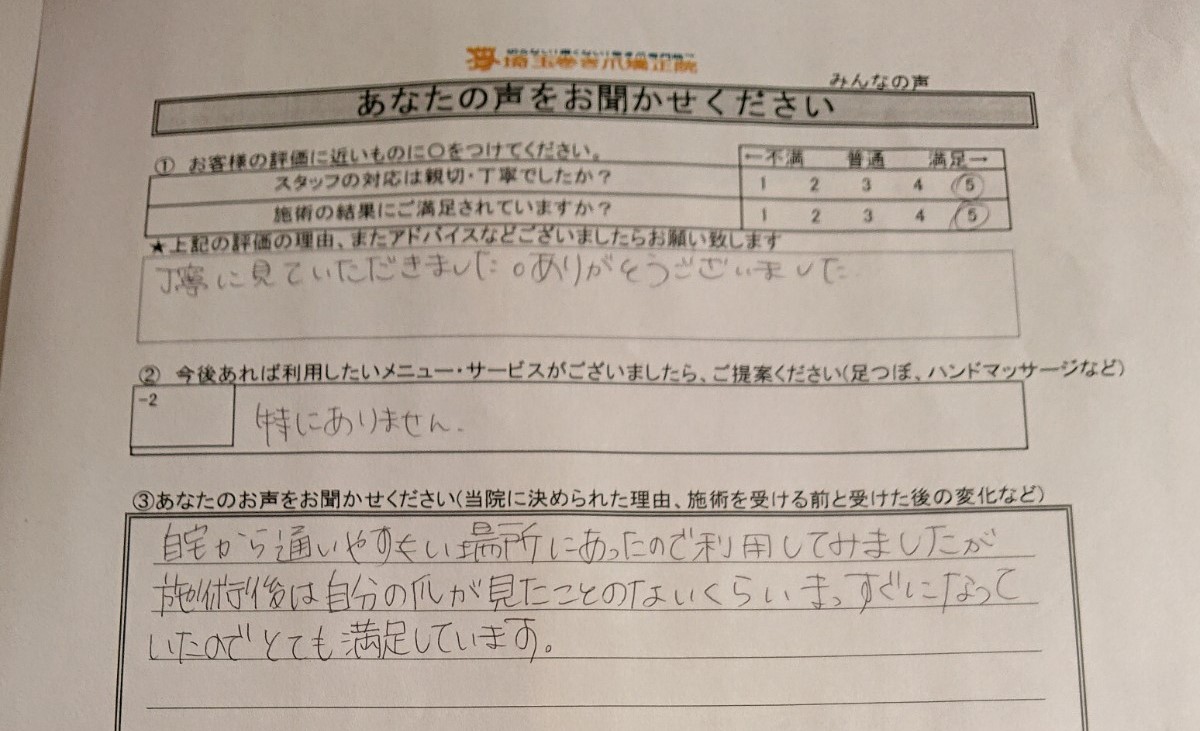 埼玉巻き爪矯正院
みんなの声
あなたの声をお聞かせください
① お客様の評価に近いものに○をつけてください。
←不満 普通 満足→
スタッフの対応は親切・丁寧でしたか? 1 2 3 4 5
施術の結果にご満足されていますか? 1 2 3 4 5
★上記の評価の理由、またアドバイスなどございましたらお願い致します
丁寧に見ていただきました。ありがとうございました
② 今後あれば利用したいメニュー・サービスがございましたら、ご提案ください(足つぼ、ハンドマッサージなど)
-2
特にありません.
③あなたのお声をお聞かせください(当院に決められた理由、施術を受ける前と受けた後の変化など)
自宅から通いやすい場所にあったので利用してみましたが
施術後は自分の爪が見たことのないくらいまっすぐになって
いたのでとても満足しています。